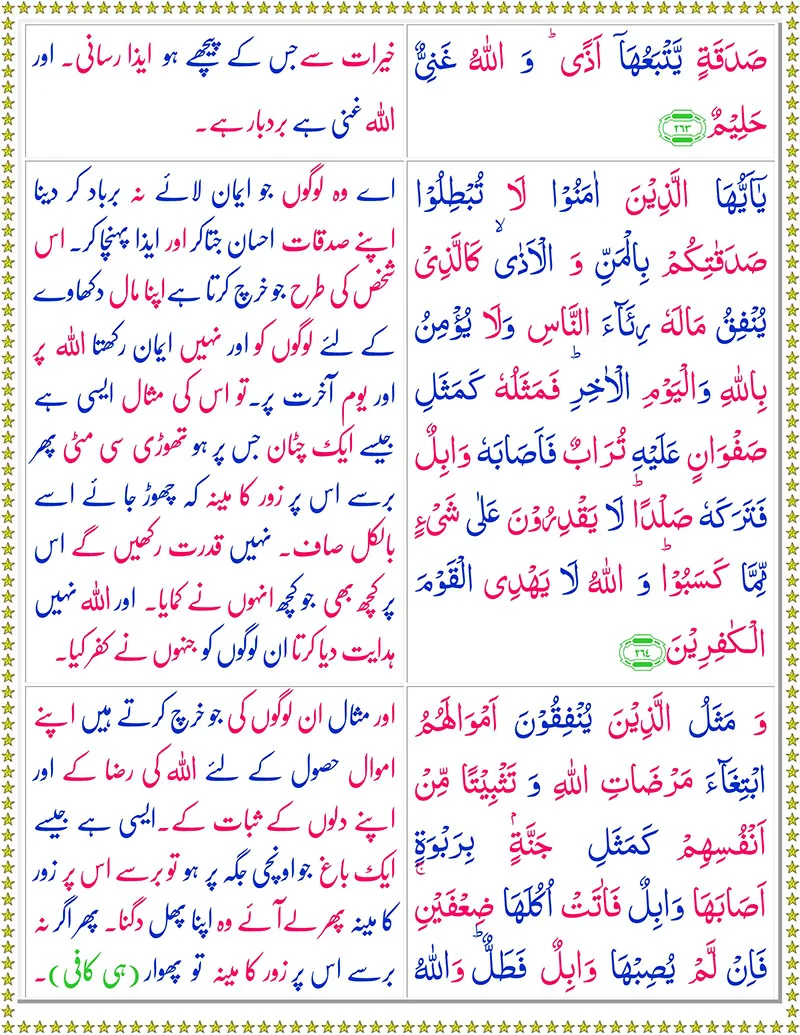 صَدَقَةٍ يَّتْبَعُهَاۤ اَذًىؕ وَ اللّٰهُ غَنِیٌّ
حَلِیْمٌ ۲۶۳
خیرات سے جس کے پیچھے ہو ایذا رسانی۔ اور
اللہ غنی ہے بردبار ہے۔
یٰۤاَیُّهَا الَّذِیْنَ اٰمَنُوْا لَا تُبْطِلُوْا
صَدَقٰتِكُمْ بِالْمَنِّ وَ الْاَذٰىۙ كَالَّذِیْ
یُنْفِقُ مَالَهٗ رِئَآءَ النَّاسِ وَلَا یُؤْمِنُ
بِاللّٰهِ وَالْیَوْمِ الْاٰخِرِؕ فَمَثَلُهٗ كَمَثَلِ
صَفْوَانٍ عَلَیْهِ تُرَابٌ فَاَصَابَهٗ وَابِلٌ
فَتَرَكَهٗ صَلْدًاؕ لَا یَقْدِرُوْنَ عَلٰى شَیْءٍ
مِّمَّا كَسَبُوْاؕ وَ اللّٰهُ لَا یَهْدِی الْقَوْمَ
الْكٰفِرِیْنَ ۲۶۴
اے وہ لوگوں جو ایمان لائے نہ برباد کر دینا
اپنے صدقات احسان جتاکر اور ایذا پہنچا کر۔ اس
شخص کی طرح جو خرچ کرتا ہے اپنا مال دکھاوے
کے لئے لوگوں کو اور نہیں ایمان رکھتا اللہ پر
اور یوم آخرت پر۔ تو اس کی مثال ایسی ہے
جیسے ایک چٹان جس پر ہو تھوڑی سی مٹی پھر
برسے اس پر زور کا مینہ کہ چھوڑ جائے اسے
بالکل صاف۔ نہیں قدرت رکھیں گے اس
پر کچھ بھی جو کچھ انہوں نے کمایا۔ اور اللہ نہیں
ہدایت دیا کرتا ان لوگوں کو جنہوں نے کفر کیا۔
وَ مَثَلُ الَّذِیْنَ یُنْفِقُوْنَ اَمْوَالَهُمُ
ابْتِغَآءَ مَرْضَاتِ اللّٰهِ وَ تَثْبِیْتًا مِّنْ
اَنْفُسِهِمْ كَمَثَلِ جَنَّةٍۭ بِرَبْوَةٍ
اَصَابَهَا وَابِلٌ فَاٰتَتْ اُكُلَهَا ضِعْفَیْنِۚ
فَاِنْ لَّمْ یُصِبْهَا وَابِلٌ فَطَلٌّؕ وَاللّٰهُ
اور مثال ان لوگوں کی جو خرچ کرتے ہیں اپنے
اموال حصول کے لئے اللہ کی رضا کے اور
اپنے دلوں کے ثبات کے۔ ایسی ہے جیسے
ایک باغ جو اونچی جگہ پر ہو تو برسے اس پر زور
کا مینہ پھر لے آئے وہ اپنا پھل دگنا۔ پھر اگر نہ
برسے اس پر زور کا مینہ تو پھوار (ہی کافی)۔